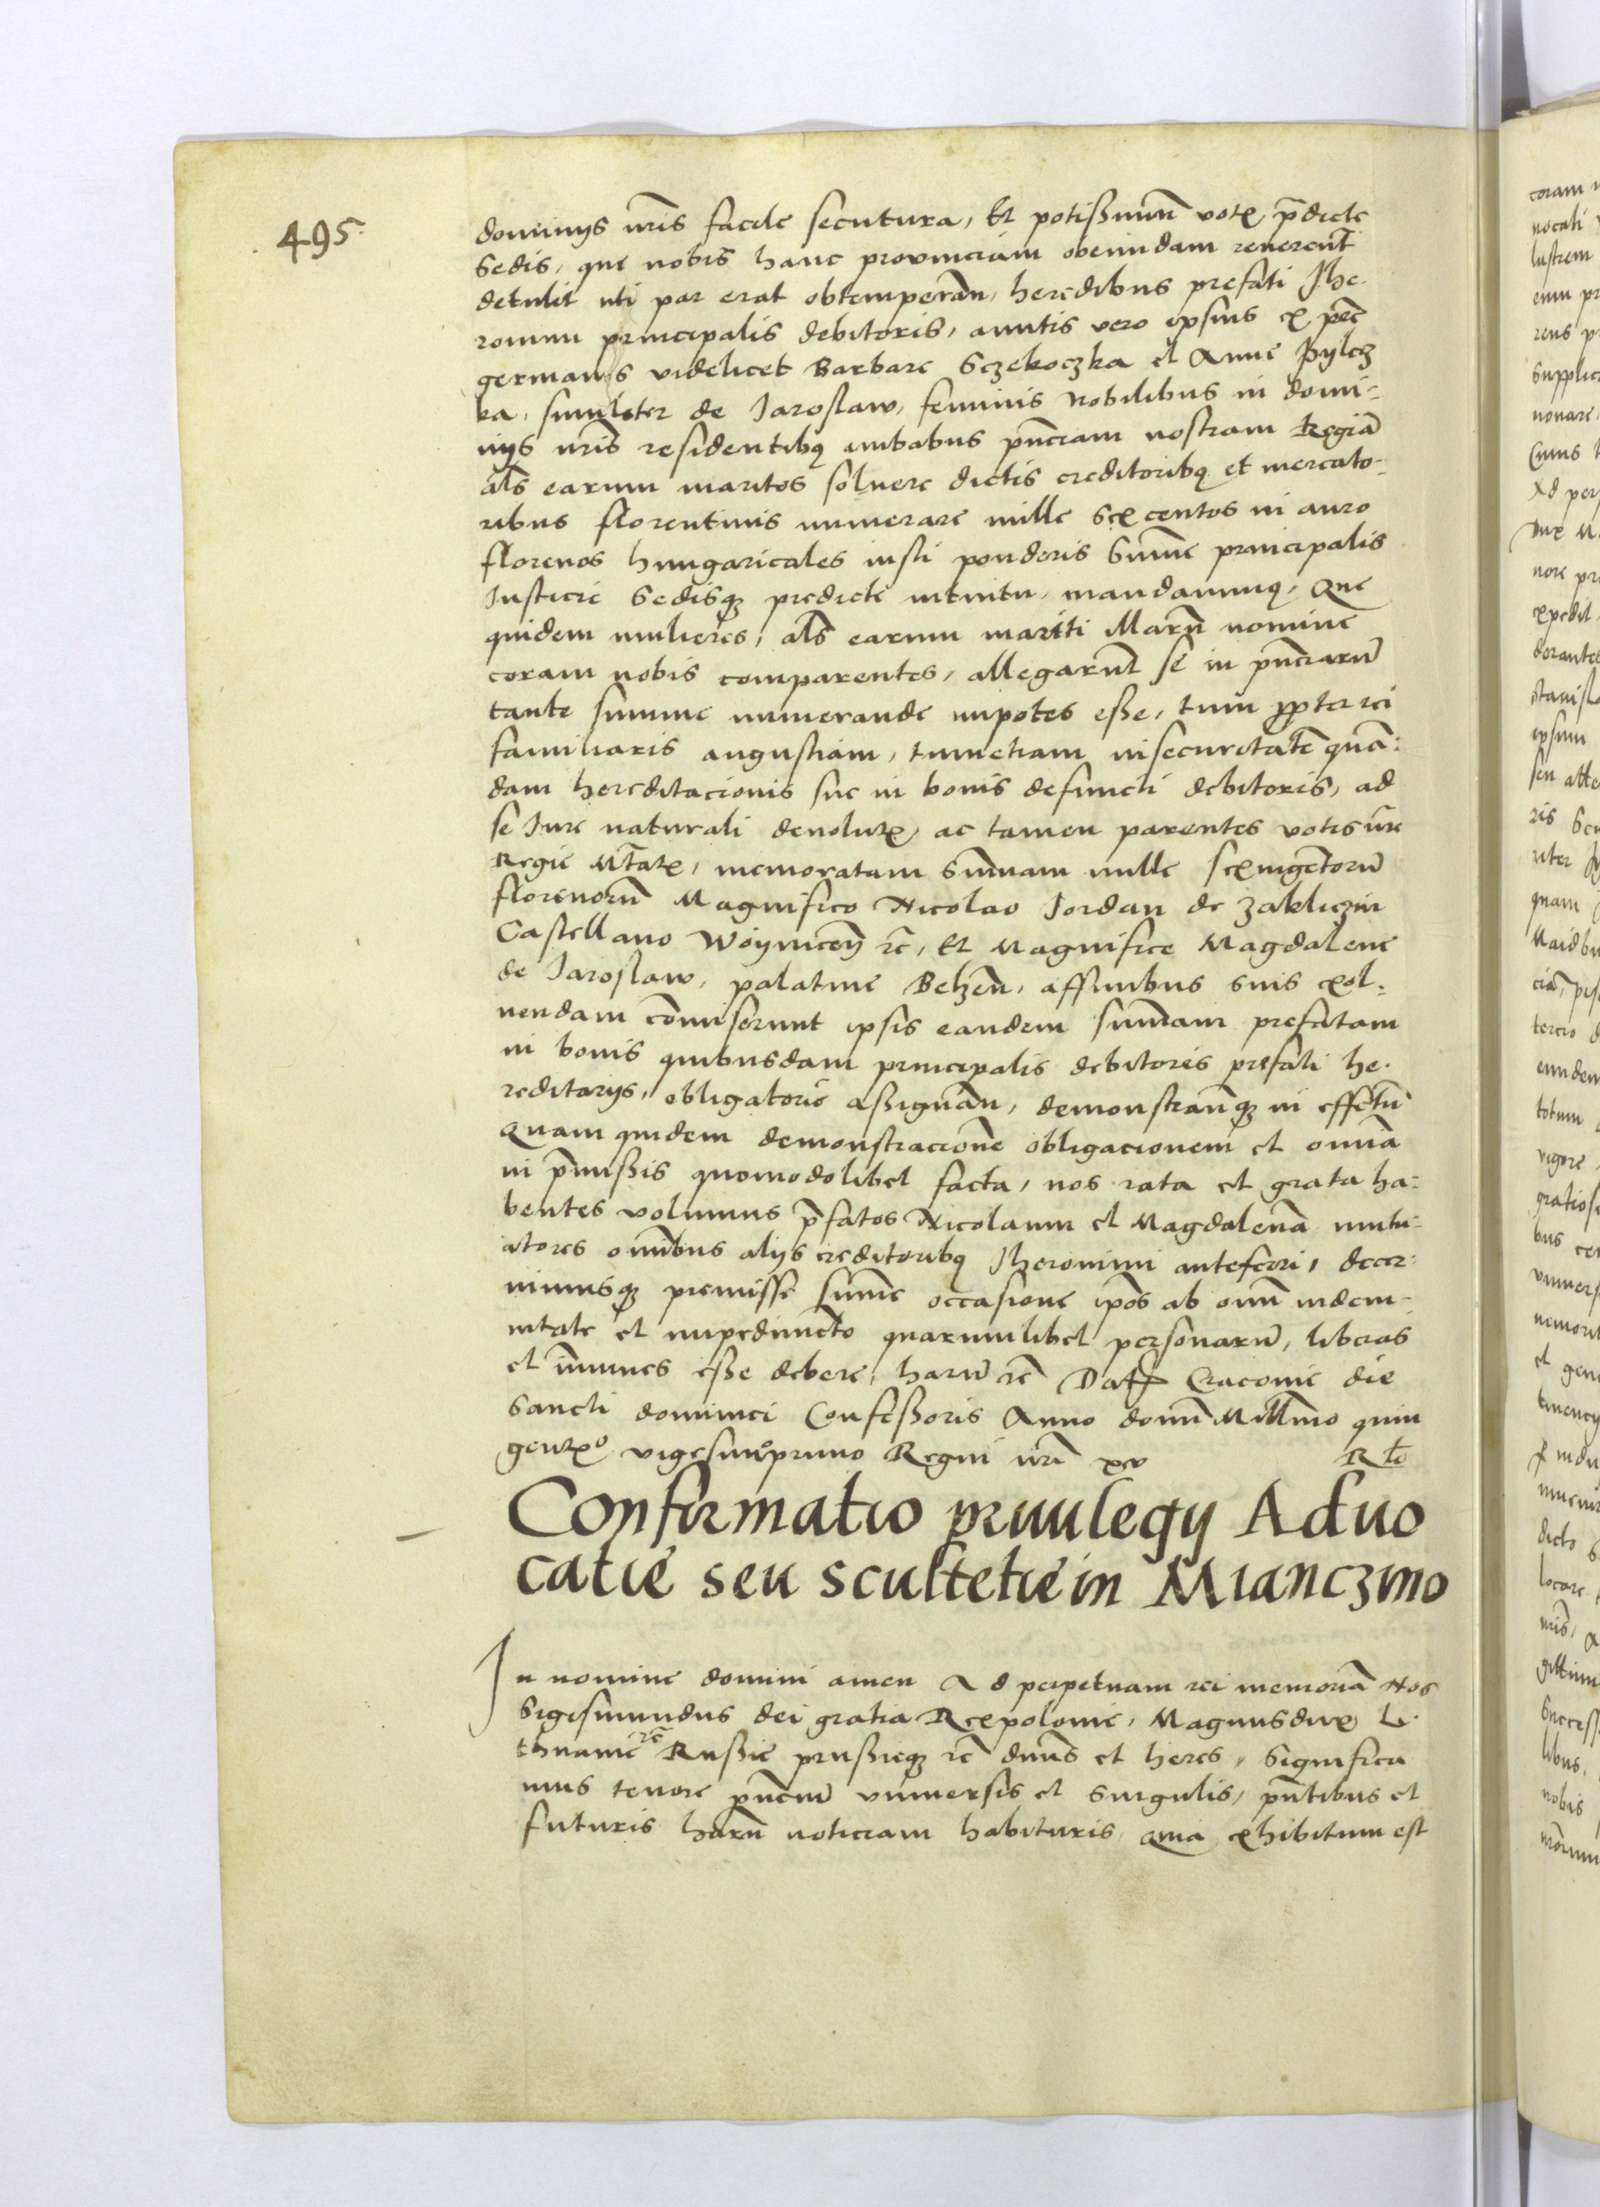 495.
dominijs nr̃is facile secutura, Et potissimum vot , p̃dicte
sedis, que nobis hanc provinciam obeundam reverent̃
detulit uti par erat obtemperañ, heredibus prefati Jhe-
ronimi principalis debitoris, amitis vero ipsius ex
germanis videlicet Barbare Sczekoczka et Anne Pylcz
ka, similiter de Jaroslaw, feminis nobilibus in domi-
nijs nr̃is residentibꝫ ambabus p̃nciam nostram Regiã
al̃s earum maritos solvere dictis creditoribꝫ et mercato-
ribus florentinis numerare mille sexcentos in auro
florenos hungaricales iusti ponderis sum̃e principalis
Justicie Sedisqꝫ predicte intuitu, mandavimꝫ, Que
quidem mulieres, al̃s earum mariti illarũ nomine
coram nobis comparentes, allegarunt se in p̃nciarũ
tante summe numerande impotes esse, tum ꝓpter rei
familiaris angustiam, tumetiam insecuritatẽ quã-
dam hereditacionis sue in bonis defuncti debitoris, ad
se Jure naturali devolut , ac tamen parentes votis nr̃e
Regie Mtat , memoratam sum̃am mille sexingentorũ
florenorũ Magnifico Nicolao Jordan de Zakliczin
Castellano Woyniceñ rc̃, Et Magnifice Magdalene
de Jaroslaw, palatine Belzeñ, affinibus suis exol-
vendam com̃iserunt ipsis eandem sum̃am prefatam
in bonis quibusdam principalis debitoris prefati he-
reditarijs, obligatorie assignañ, demonstranqꝫ in effectũ
Quam quidem demonstracionẽ obligacionem et omnia
in p̃missis quomodolibet facta, nos rata et grata ha-
bentes volumus p̃fatos Nicolaum et Magdalenã mutu-
atores omnibus alijs creditoribꝫ Jheronimi anteferri, decer-
nimusqꝫ premisse sum̃e occasione ip̃os ab omni indem-
nitate et impedim̃eto quarumlibet personarũ, liberas
et im̃unes esse debere, harũ rc̃ Datt̃ Cracovie die
Sancti dominici Confessoris Anno domĩ Mill̃imo quin
gent o vigesimoprimo Regni nr̃i xv Rt̃o
Confirmatio privilegy Advo
catie seu scultetie in Mianczino
In nomine domini amen Ad perpetuam rei memoriã Nos
Sigismundus dei gratia Rex polonie, Magnus dux Li-
thuanie rc̃ Russie prussieqꝫ rc̃ dñus et heres, Significa
mus tenore p̃ncium universis et singulis, p̃ntibus et
futuris harũ noticiam habituris, Quia exhibitum est